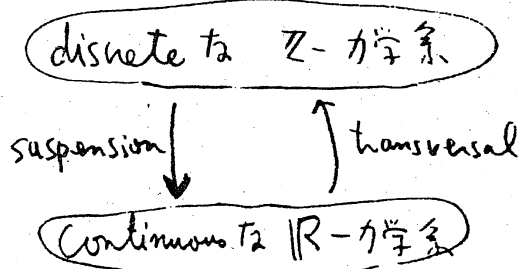 discrete な ℤ-力学系
suspension
transversal
continuous な ℝ-力学系